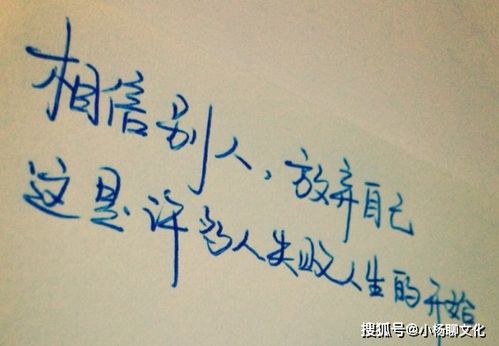 相信别人，放弃自己
这是许多人失败人生的开始
搜狐号@小杨聊文化